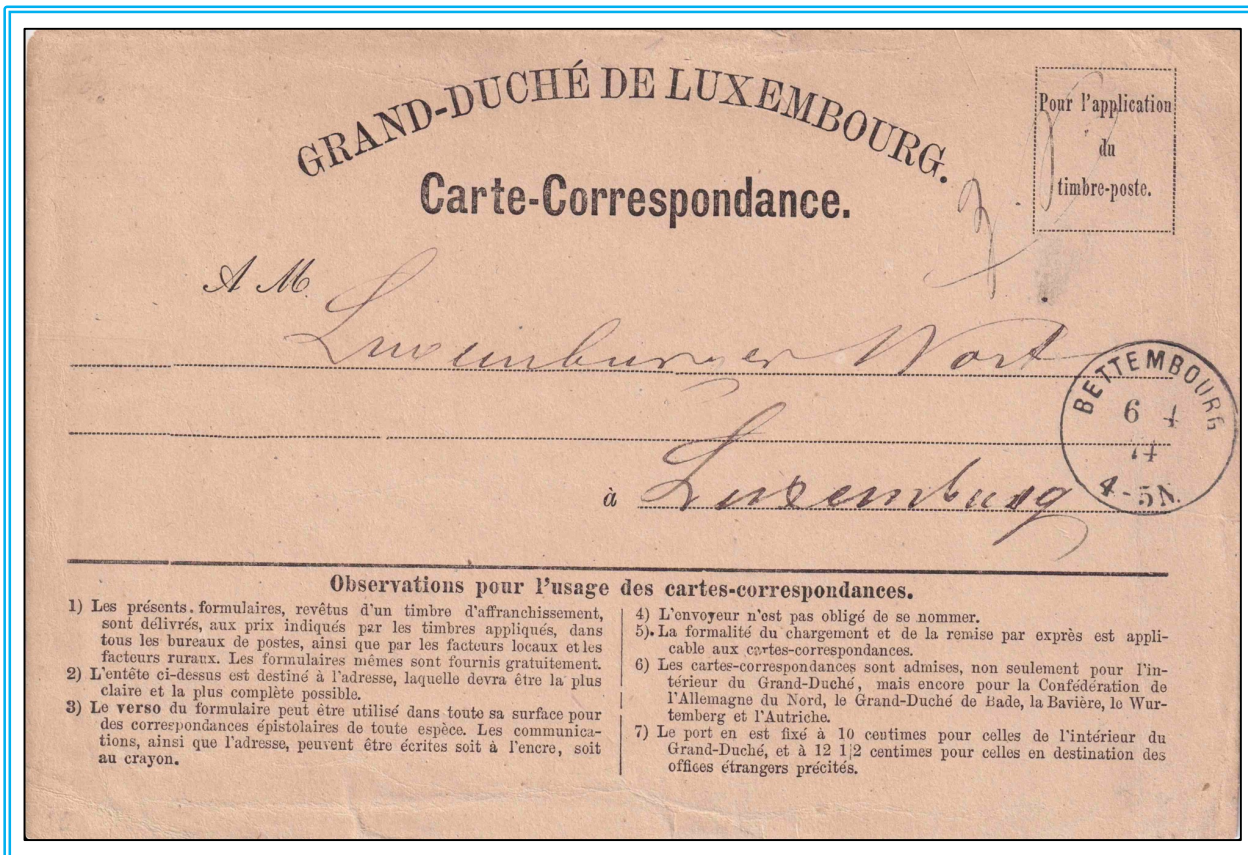 GRAND-DUCHÉ DE LUXEMBOURG.
Carte-Correspondance.
Pour l'application
du
timbre-poste.
A M.
Luxemburger Wort
à Luxemburg
BETTEMBOURG
6 4
74
4-5N.
Observations pour l'usage des cartes-correspondances.
1) Les présents. formulaires, revêtus d'un timbre d'affranchissement,
sont délivrés, aux prix indiqués par les timbres appliqués, dans
tous les bureaux de postes, ainsi que par les facteurs locaux et les
facteurs ruraux. Les formulaires mêmes sont fournis gratuitement.
2) L'entête ci-dessus est destiné à l'adresse, laquelle devra être la plus
claire et la plus complète possible.
3) Le verso du formulaire peut être utilisé dans toute sa surface pour
des correspondances épistolaires de toute espèce. Les communica-
tions, ainsi que l'adresse, peuvent être écrites soit à l'encre, soit
au crayon.
4) L'envoyeur n'est pas obligé de se nommer.
5). La formalité du chargement et de la remise par exprès est appli-
cable aux cartes-correspondances.
6) Les cartes-correspondances sont admises, non seulement pour l'in-
térieur du Grand-Duché, mais encore pour la Confédération de
l'Allemagne du Nord, le Grand-Duché de Bade, la Bavière, le Wur-
temberg et l'Autriche.
7) Le port en est fixé à 10 centimes pour celles de l'intérieur du
Grand-Duché, et à 12 1|2 centimes pour celles en destination des
offices étrangers précités.